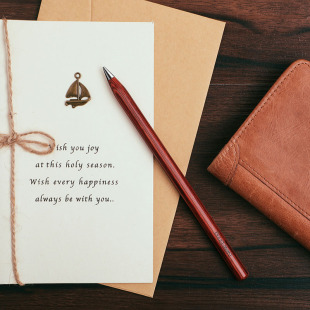 ish you joy
at this holy season.
Wish every happiness
always be with you..